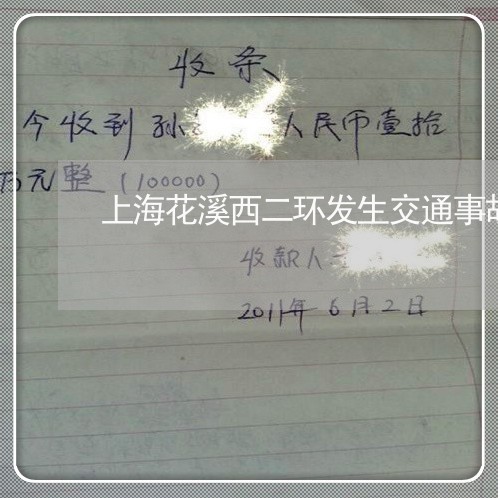 收条
今收到孙 人民币壹拾
万元整(100000)
上海花溪西二环发生交通事故
收款人
2011年6月2日